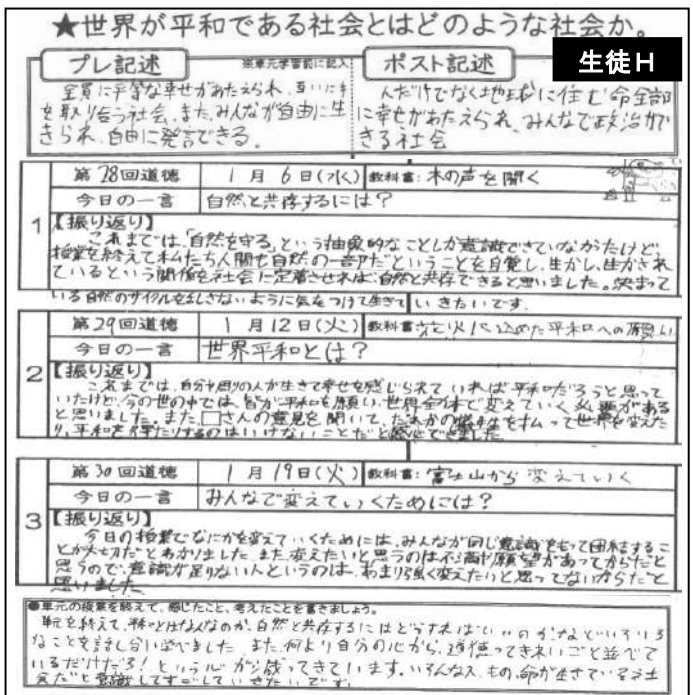 ★世界が平和である社会とはどのような社会か。
プレ記述
※単元学習前に記入
全員に平等な幸せがあたえられ、互いに手
を取り合う社会、また、みんなが自由に生
きられ、自由に発言できる。
ポスト記述
生徒H
人だけでなく地球に住む命全部
に幸せがあたえられ、みんなで政治がで
きる社会
第28回道徳
1月6日(水)
教科書:木の声を聞く
今日の一言
自然と共存するには?
1
【振り返り】
これまでは、「自然を守る」という抽象的なことしか意識できていなかったけど、
授業を終えて私たち人間も自然の一部だということを自覚し、生かし、生かされ
ているという関係を社会に定着させれば、自然と共存できると思いました。決まって
いる自然のサイクルを乱しさないように気をつけて生きていきたいです。
第29回道徳
1月12日(火)
教科書:花火に込めた平和への願い
今日の一言
世界平和とは?
2
【振り返り】
これまでは、自分や周りの人が生きて幸せを感じられていれば平和だろうと思って
いたけど、今の世の中では、皆が平和を願い、世界全体で変えていく必要がある
と思いました。また、□さんの意見を聞いて、だれかの犠牲を払って世界を変えた
り、平和を得たりするのはいけないことだと感心できました
第30回道徳
1月19日(火)
教科書:富士山から変えていく
今日の一言
みんなで変えていくためには?
3
【振り返り】
今日の授業でなにかを変えていくためには、みんなが同じ意識をもって団結するこ
とが大切だとわかりました。また、変えたいと思うのは不満や願望があってからだと
思うので、意識が足りない人というのは、あまり強く変えたいと思ってないからだと
思いました
●単元の授業を終えて、感じたこと、考えたことを書きましょう。
単元を終えて、平和とはなんなのか、自然と共存するにはどうすればいいのかなどいろいろ
なことを話し合い学べました。また、何より自分の心から、道徳ってきれいごと並べて
いるだけだろ!という心が減ってきています。いろんな人、もの、命が生きている社
会だと意識してすごしていきたいです。